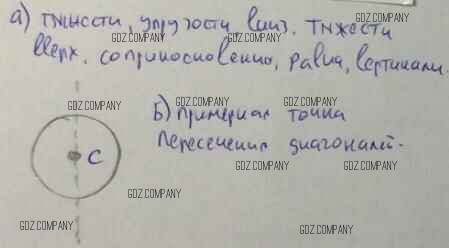 а) тяжести, упругости вниз. Тяжести
вверх, соприкосновению, равна, вертикали.
GDZ.COMPANY
GDZ.COMPANY
GDZ.COMPANY
GDZ.COMPANY
GDZ.COMPANY
Б) примерная точка
пересечения диагоналей.
C
GDZ.COMPANY
GDZ.COMPANY
GDZ.COMPANY
GDZ.COMPANY
GDZ.COMPANY
GDZ.COMPANY